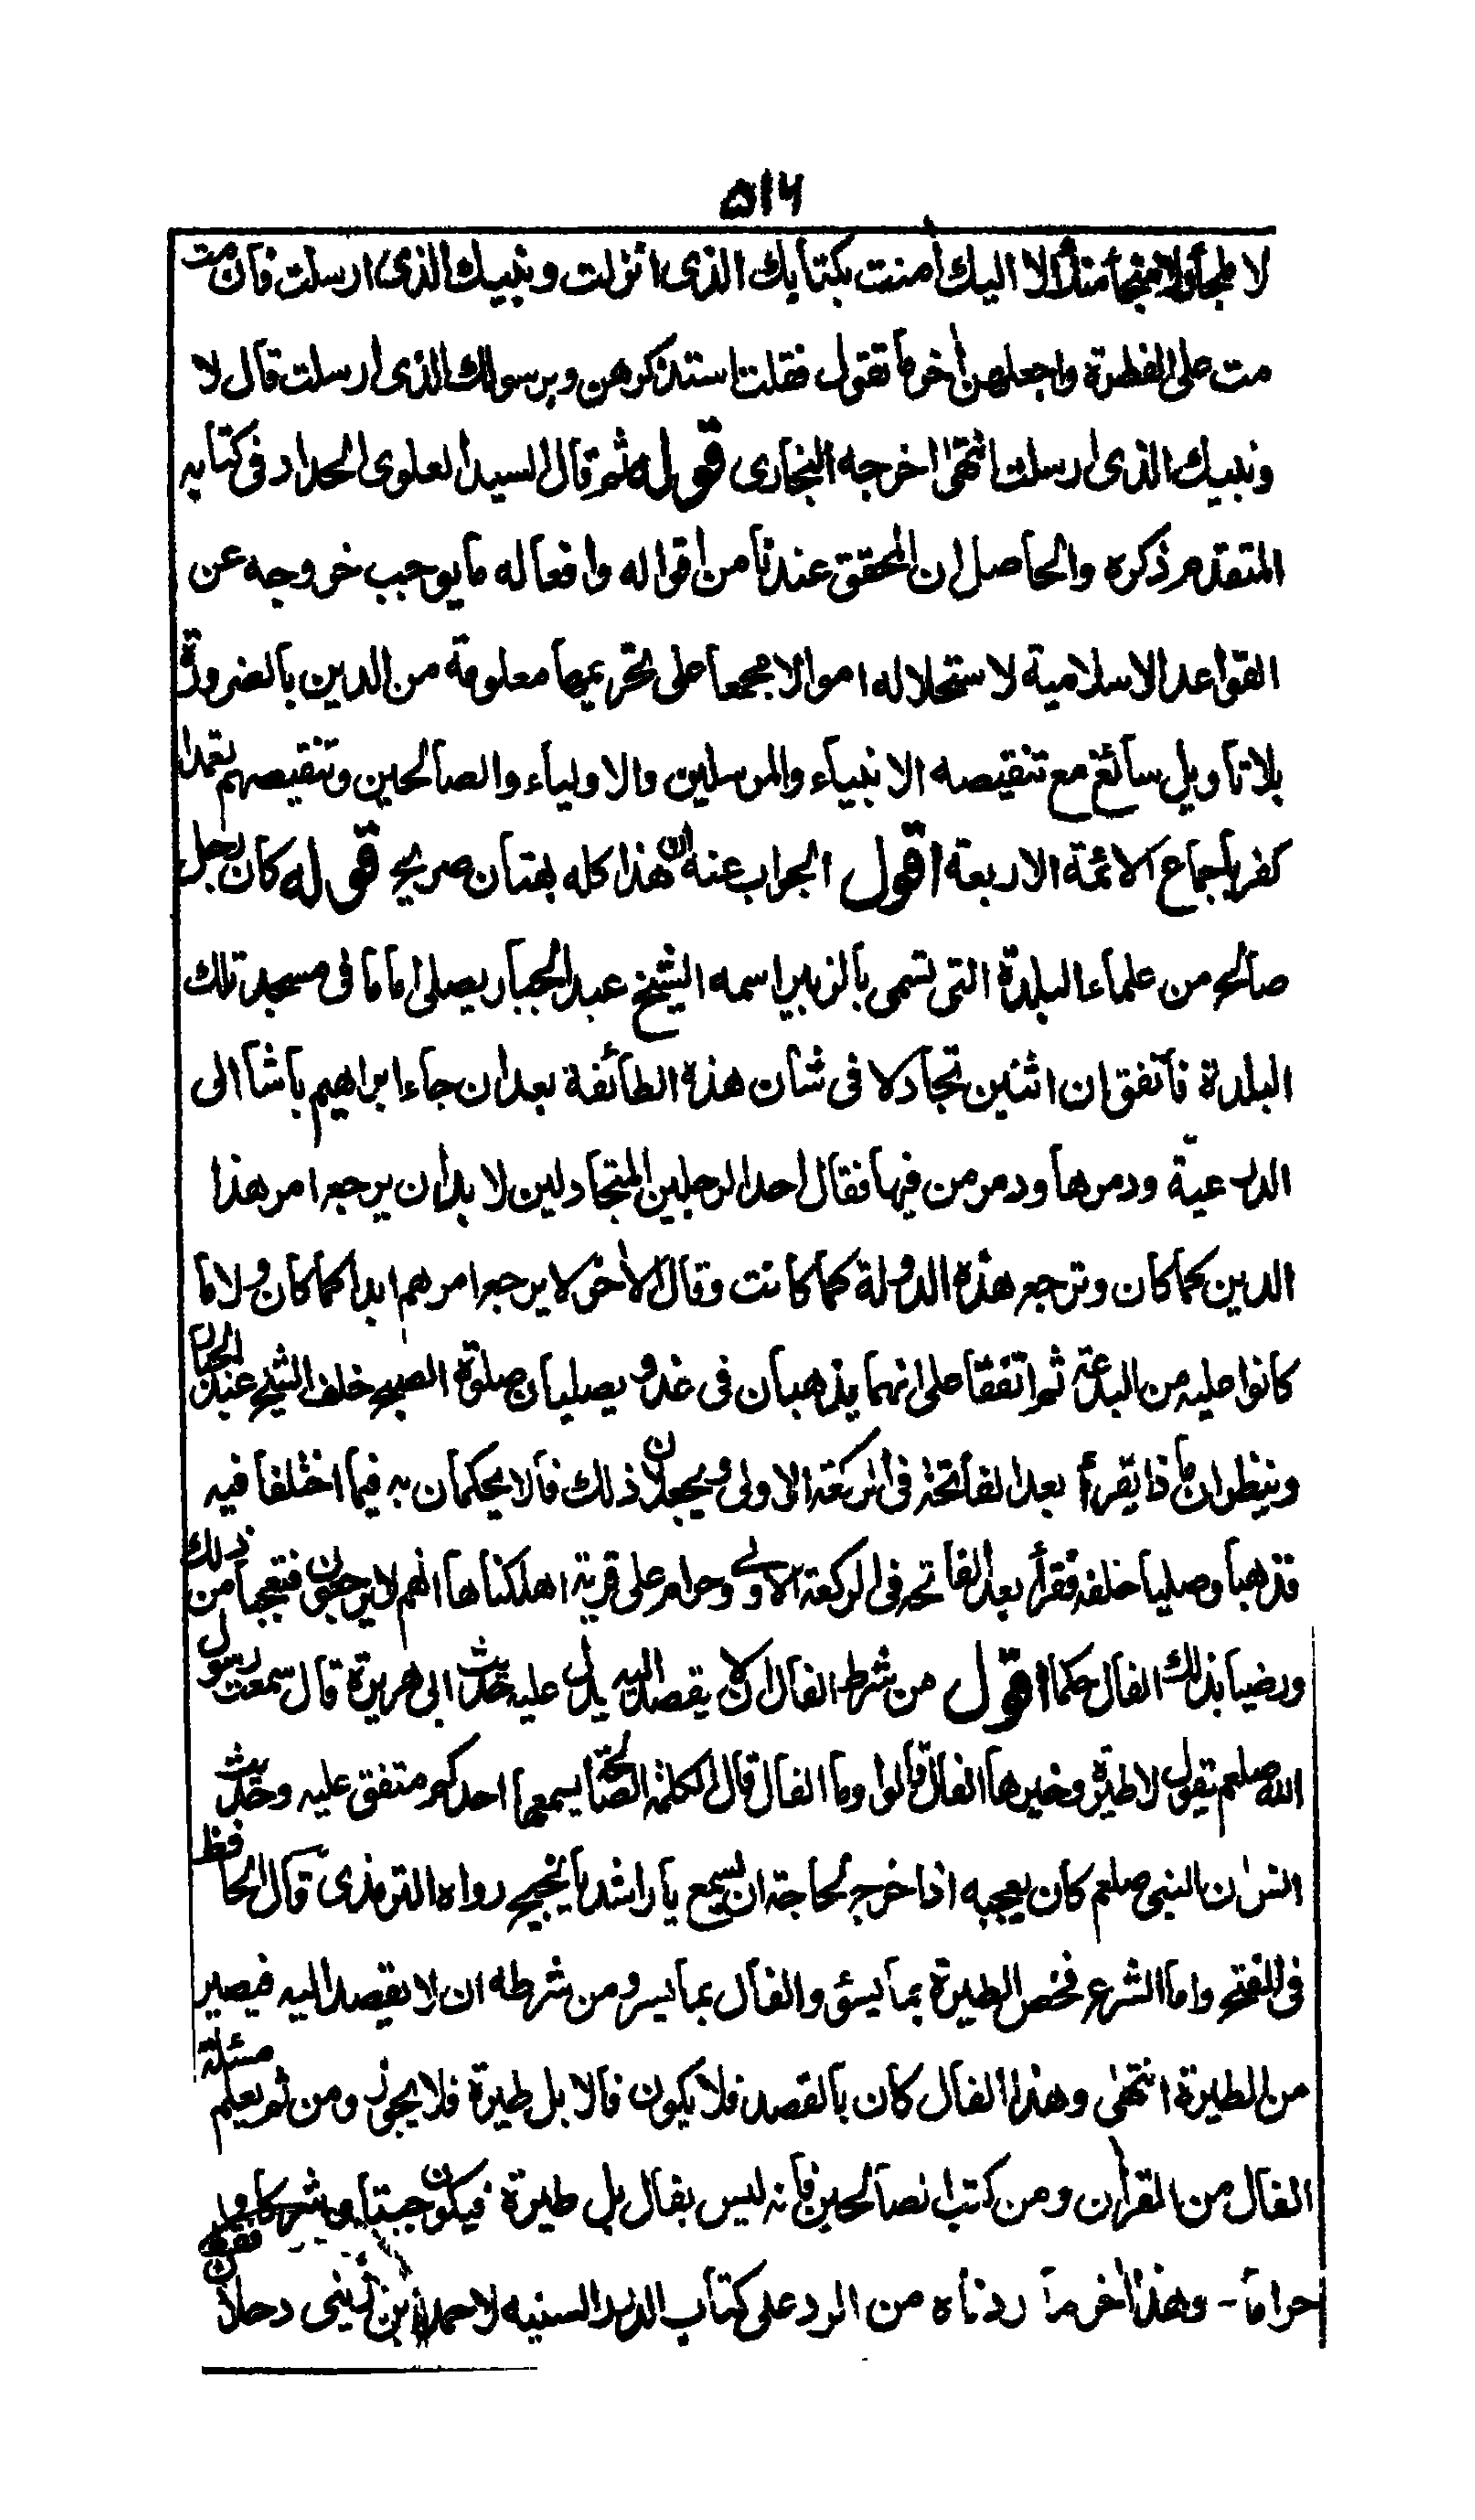 ٥١٦
لا ملجأ ولا منجأ منك الا اليك أمنت بكتابك الذى انزلت ونبيك الذى ارسلت فان مت
مت على الفطرة واجعلهن أخر ما تقول فقلت استذكرهن وبرسولك الذى ارسلت قال لا
ونبيك الذى ارسلت انتهى اخرجه البخارى قوله ثم قال السيد العلوى الحداد فى كتابه
المتقدم ذكره والحاصل ان المحقق عندنا من اقواله وافعاله ما يوجب خروجه عن
القواعد الاسلامية لاستحلاله اموالا مجمعا على تحريمها معلومة من الدين بالضرورة
بلا تاويل سائغ مع تنقيصه الانبياء والمرسلين والاولياء والصالحين وتنقيصهم تعمدا
كفر باجماع الائمة الاربعة اقول الجواب عنه ان هذا كله بهتان صريح قوله كان رجل
صالح من علماء البلدة التى تسمى بالزبير اسمه الشيخ عبد الجبار يصلى اماما فى مسجد تلك
البلدة فاتفق ان اثنين تجادلا فى شان هذه الطائفة بعد ان جاء ابراهيم باشا الى
الدرعية ودمرها ودمر من فيها فقال احد الرجلين المتجادلين لا بد ان يرجع امر هذا
الدين كما كان وترجع هذه الدولة كما كانت وقال الأخر لا يرجع امرهم ابدا كما كان ولا ما
كانوا عليه من البدعة ثم اتفقا على انهما يذهبان فى غد ويصليان صلوة الصبح خلف الشيخ عبد الجبار
وينظران ماذا يقرأ بعد الفاتحة فى الركعة الاولى ويجعلان ذلك فالا يحكمان به فيما اختلفا فيه
فذهبا وصليا خلفه فقرأ بعد الفاتحة فى الركعة الاولى وحرام على قرية اهلكناها انهم لا يرجعون فتعجبا من ذلك
ورضيا بذلك الفال حكما اقول من شرط الفال ان لا يقصد اليه يدل عليه حديث ابى هريرة قال سمعت رسول
الله صلعم يقول لا طيرة وخيرها الفال قالوا وما الفال قال الكلمة الصالحة يسمعها احدكم متفق عليه وحديث
انس ان النبى صلعم كان يعجبه اذا خرج لحاجة ان يسمع يا راشد يا نجيح رواه الترمذى قال الحافظ
فى الفتح واما الشرع فخص الطيرة بما يسئ والفال بما يسر ومن شرطه ان لا يقصد اليه فيصير
من الطيرة انتهى وهذا الفال كان بالقصد فلا يكون فالا بل طيرة فلا يجوز ومن ثم يعلم مسئلة
الفال من القرأن ومن كتب الصالحين فانه ليس بفال بل طيرة فيكون
حراما - وهذا أخر ما ردناه من الرد على كتاب الدرر السنيه لاحمد بن زينى دحلان